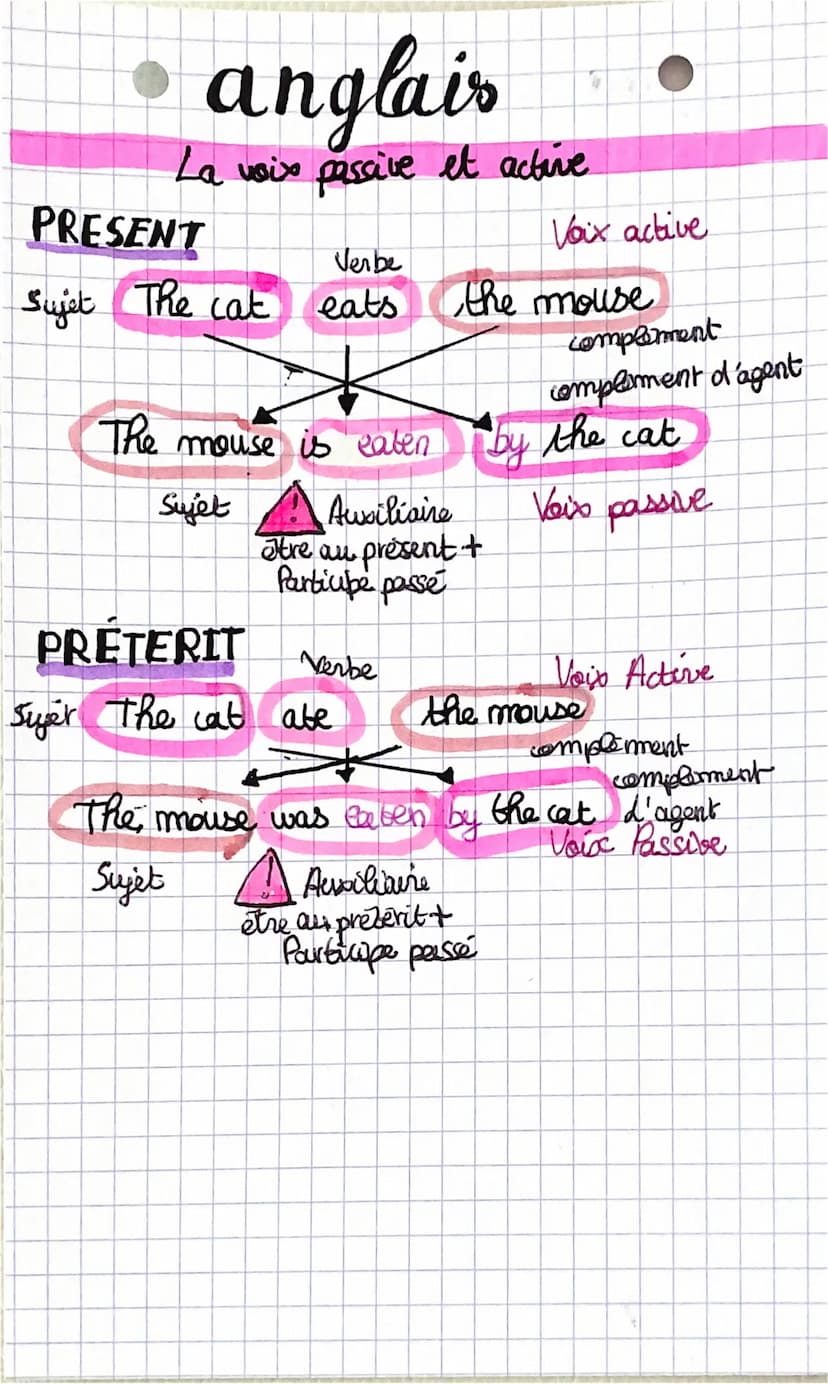 anglais
La voix passive et active
PRESENT
Voix active
Verbe
Sujet The cat eats the mouse
complément
complément d'agent
The mouse is eaten by the cat
Sujet ! Auxiliaire Voix passive
être au présent +
Participe passé
PRÉTERIT
Verbe Voix Active
Sujet The cat ate the mouse
complément
complément
The mouse was eaten by the cat d'agent
Voix Passive
Sujet ! Auxiliaire
être au préterit +
Participe passé